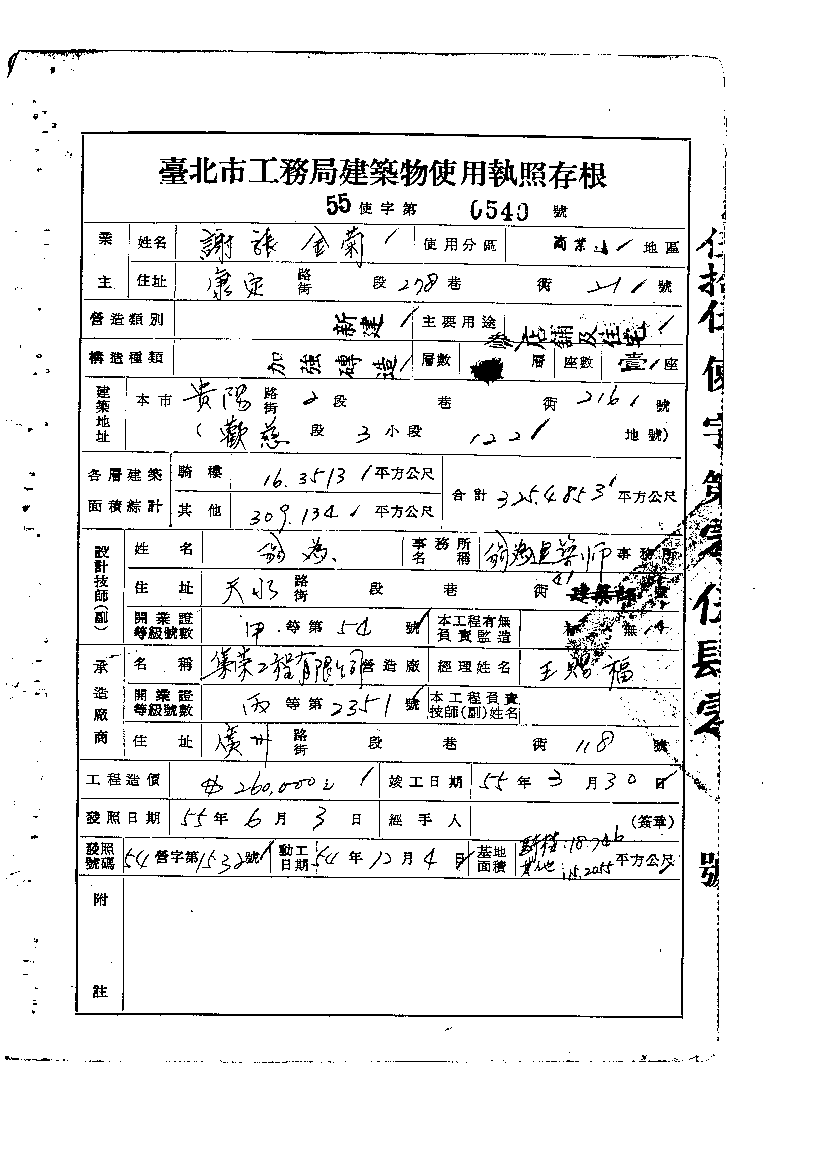 臺北市工務局建築物使用執照存根
55使字第 0540 號
業主 姓名 謝張金菊 使用分區 商業 地區
住址 康定 路街 段 278 巷 衖 21 號
營造類別 新建 主要用途 店舖及住宅
構造種類 加強磚造 層數 層 座數 壹 座
建築地址 本市 貴陽 路街 2 段 巷 衖 216 號
(歡慈 段 3 小段 122 地號)
各層建築面積綜計 騎樓 16.3513 平方公尺 合計 325.4853 平方公尺
其他 309.134 平方公尺
設計技師(副) 姓名 翁為 事務所名稱 翁為建築師 事務所
住址 天水 路街 段 巷 衖 41 號
開業證等級號數 甲 等第 54 號 本工程有無負責監造 無
承造廠商 名稱 集榮工程有限公司 營造廠 經理姓名 王賜福
開業證等級號數 丙 等第 2351 號 本工程負責技師(副)姓名
住址 廣州 路街 段 巷 衖 118 號
工程造價 260,000 竣工日期 55 年 3 月 30 日
發照日期 55 年 6 月 3 日 經手人 (簽章)
發照號碼 54 營字第 1532 號 動工日期 54 年 12 月 4 日 基地面積 騎樓:18.746 其他 平方公尺
附註
伍拾伍使字第零伍肆零號